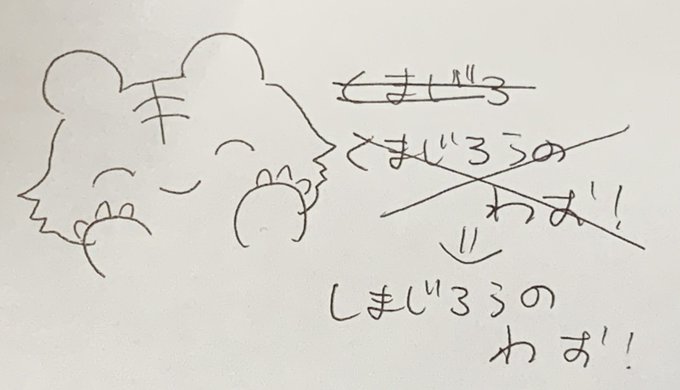 くまじろ
くまじろうの
わお!
しまじろうの
わお!